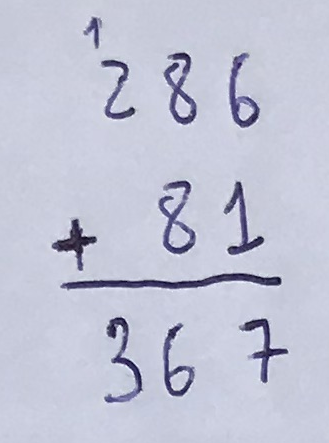 1
286
+ 81
367